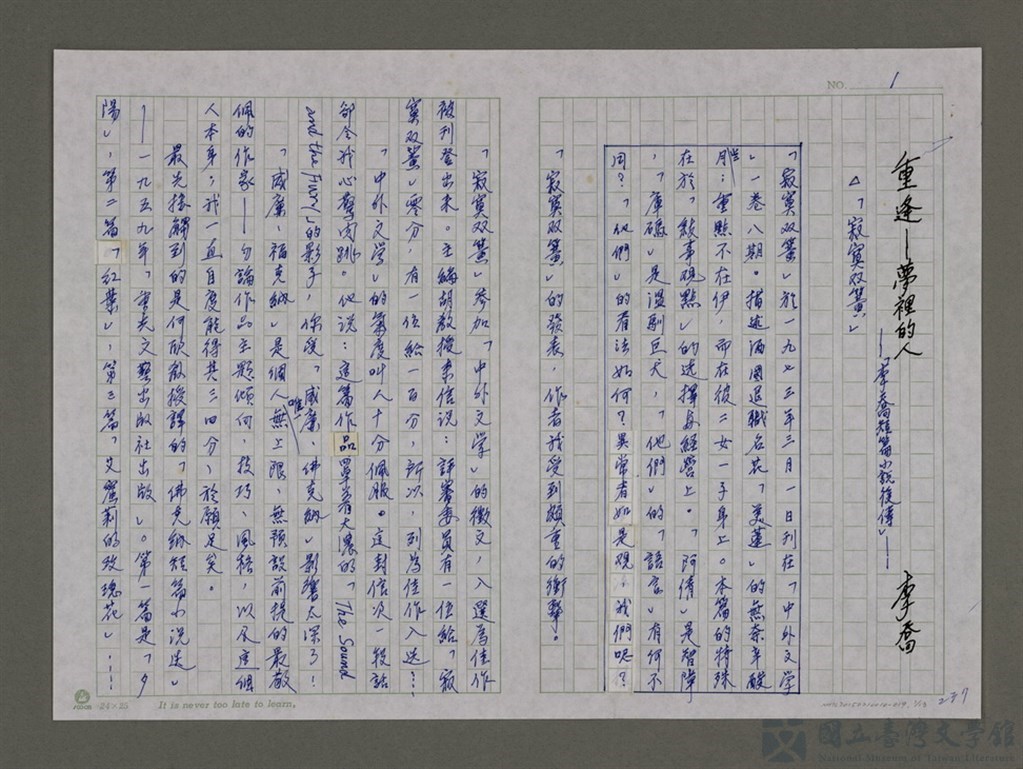 NO. 1
重逢——夢裡的人
——李喬短篇小說後傳——
李喬
△「寂寞双簧」
「寂寞双簧」於一九七三年三月一日刊在「中外文學
」一卷八期。描述酒國退職名花「美蓮」的無奈辛酸
；重點不在伊，而在彼二女一子身上。本篇的特殊
在於「敍事觀點」的选擇与經營上。「阿倩」是智障
，「庫礅」是溫馴巨犬，「他們」的「語言」有何不
同？「他們」的看法如何？異常者如是觀，我們呢？
「寂寞双簧」的發表，作者我受到頗重的衝擊。
「寂寞双簧」參加「中外文學」的徵文，入選為佳作
被刊登出來。主編胡教授來信說：評審委員有一位給「寂
寞双簧」零分，有一位給一百分，所以，列為佳作入选…
「中外文學」的氣度叫人十分佩服。這封信次一段話
卻令我心驚肉跳。他說：這篇作品罩着大濃的「The Sound
and the Fury」的影子，你受「威廉、佛克納」影響太深了！
「威廉、福克納」是個人唯一無上限、無預設前提的最敬
佩的作家——勿論作品主題傾向，技巧、風格，以及這個
人本身；我一直自度能得其三四分，於願足矣。
最先接觸到的是何欣教授譯的「佛克納短篇小說选」
——一九五九年「重光文藝出版社出版」。第一篇是「夕
陽」，第二篇「紅葉」，第三篇「艾蜜莉的玫瑰花」……
24×25
It is never too late to learn.
237
國立臺灣文學館
National Museum of Taiwan Literature